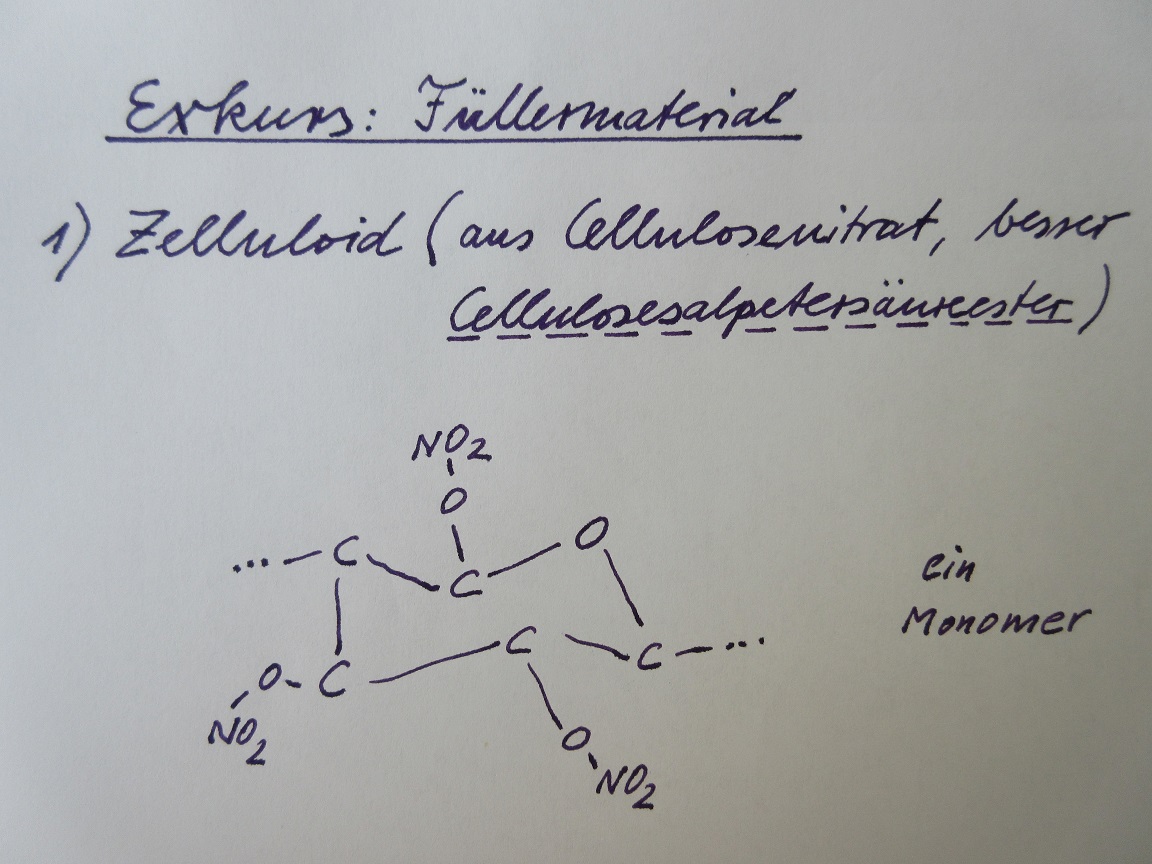 Exkurs: Füllermaterial
1) Zelluloid (aus Cellulosenitrat, besser
Cellulosesalpetersäureester)
NO2
O
... C C O
ein
Monomer
C C ...
O C
NO2
O
NO2